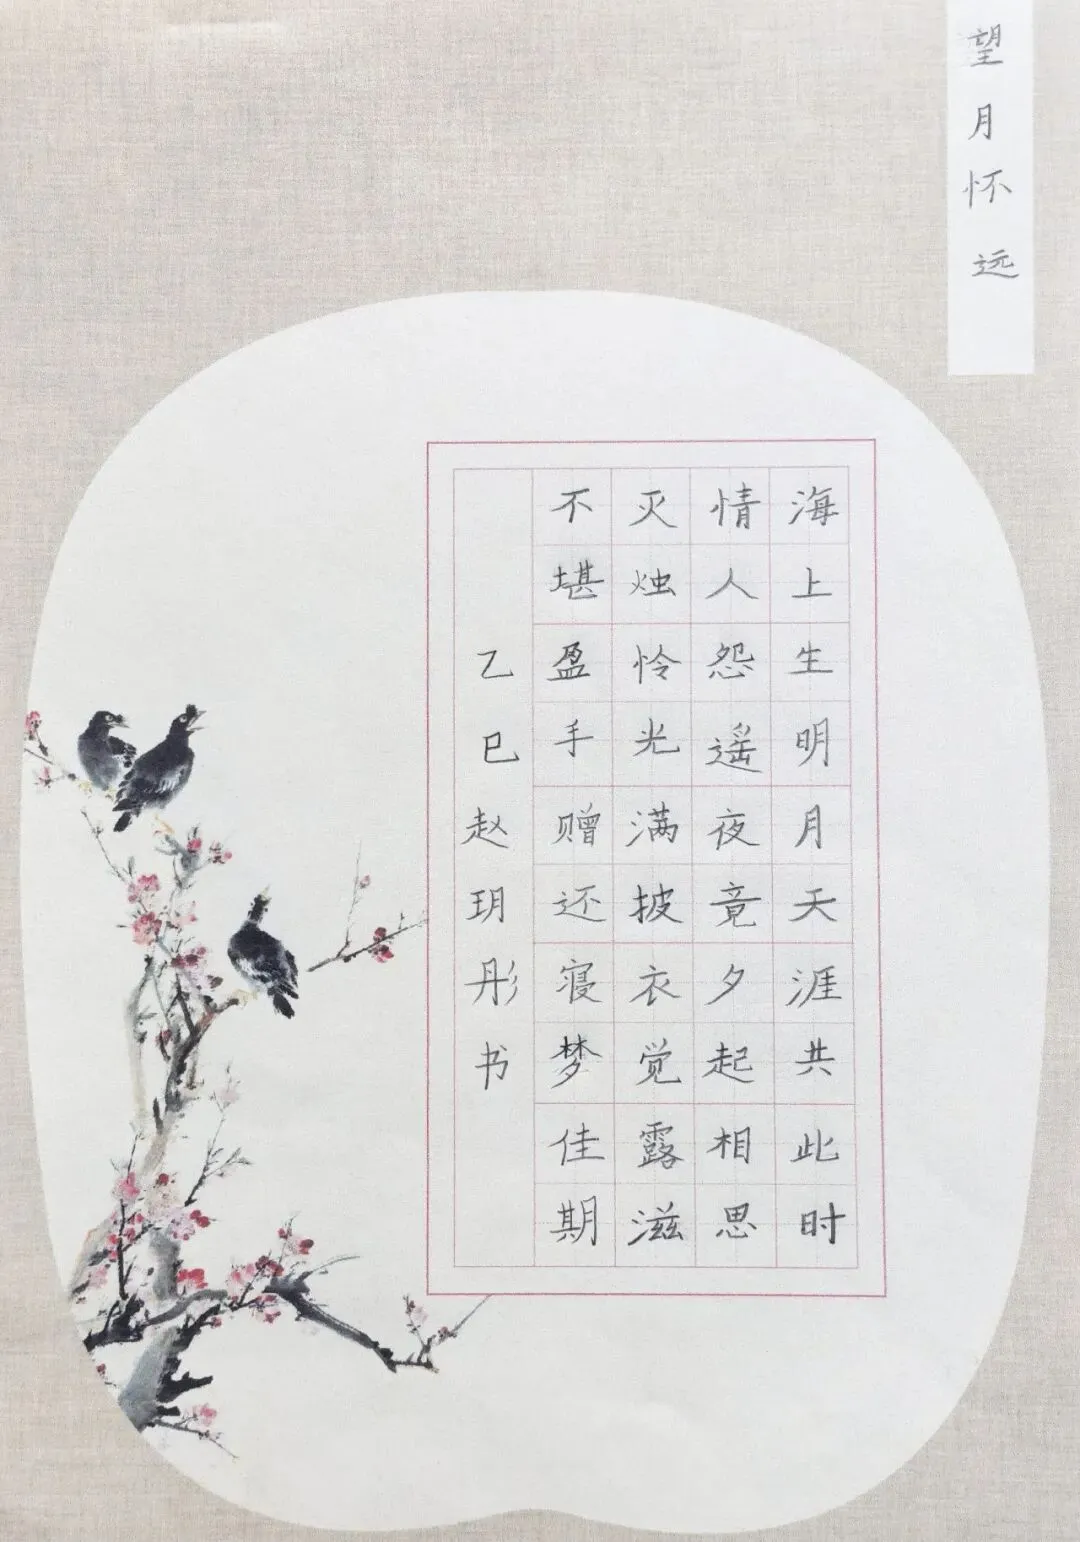 望月怀远
海上生明月天涯共此时
情人怨遥夜竟夕起相思
灭烛怜光满披衣觉露滋
不堪盈手赠还寝梦佳期
乙巳赵玥彤书